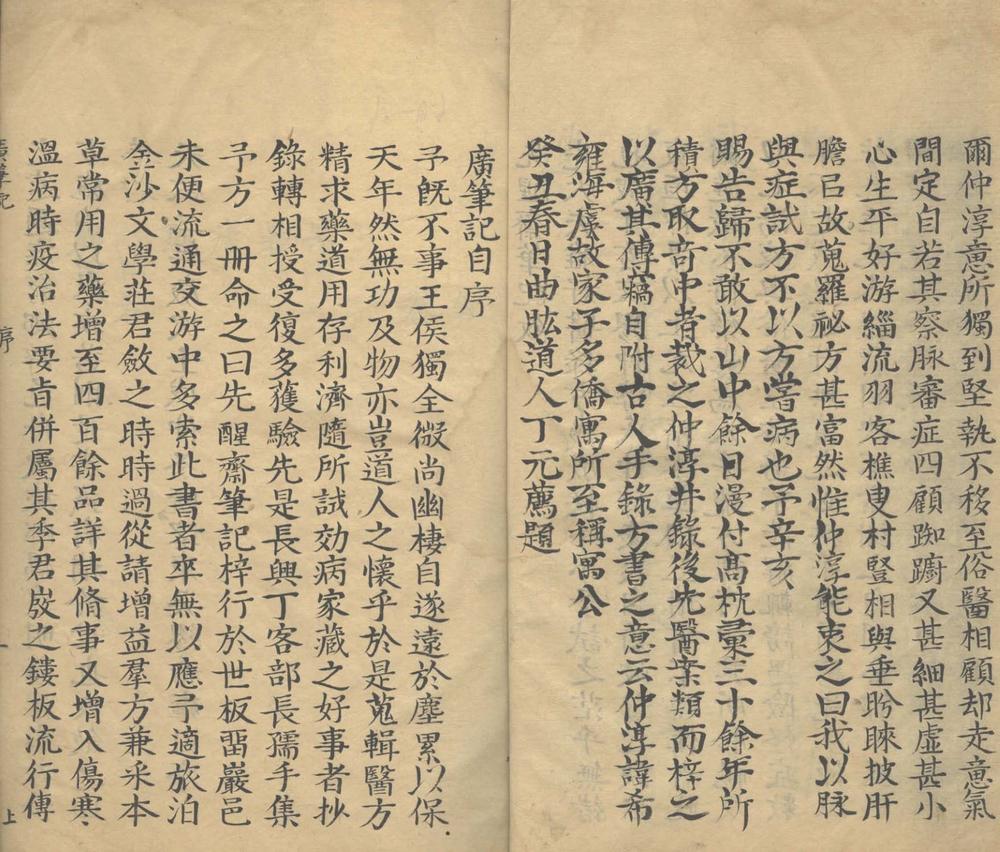 爾仲淳意所獨到堅執不移至俗醫相顧却走意氣
間定自若其察脉審症四顧踟躕又甚細甚虛甚小
心生平好游緇流羽客樵叟村豎相與垂盻睞披肝
膽已故蒐羅祕方甚富然惟仲淳能朿之曰我以脉
與症試方不以方嘗病也予辛亥
賜告歸不敢以山中餘日漫付高枕彚三十餘年所
積方取竒中者裁之仲淳并錄後先醫案類而梓之
以廣其傳稿自附古人手錄方書之意云仲淳諱希
雍海虞故家子多僑寓所至稱寓公
癸丑春日曲肱道人丁元薦題
廣筆記自序
予旣不事王侯獨全微尚幽棲自遂遠於塵累以保
天年然無功及物亦豈道人之懷乎於是蒐輯醫方
精求藥道用存利濟隨所試効病家藏之好事者抄
錄轉相授受復多獲驗先是長興丁客部長孺手集
予方一冊命之曰先醒齋筆記梓行於世板畱巖邑
未便流通交游中多索此書者卒無以應予適旅泊
金沙文學莊君斂之時時過從請增益羣方兼采本
草常用之藥增至四百餘品詳其脩事又增入傷寒
溫病時疫治法要㫖併屬其季君㷖之鏤板流行傳
廣筆記
序
一
上